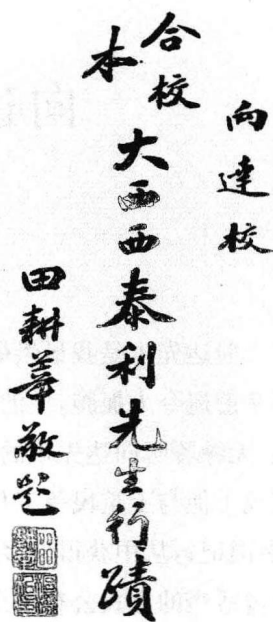 向達校
合校本
大西西泰利先生行蹟
田耕莘敬題